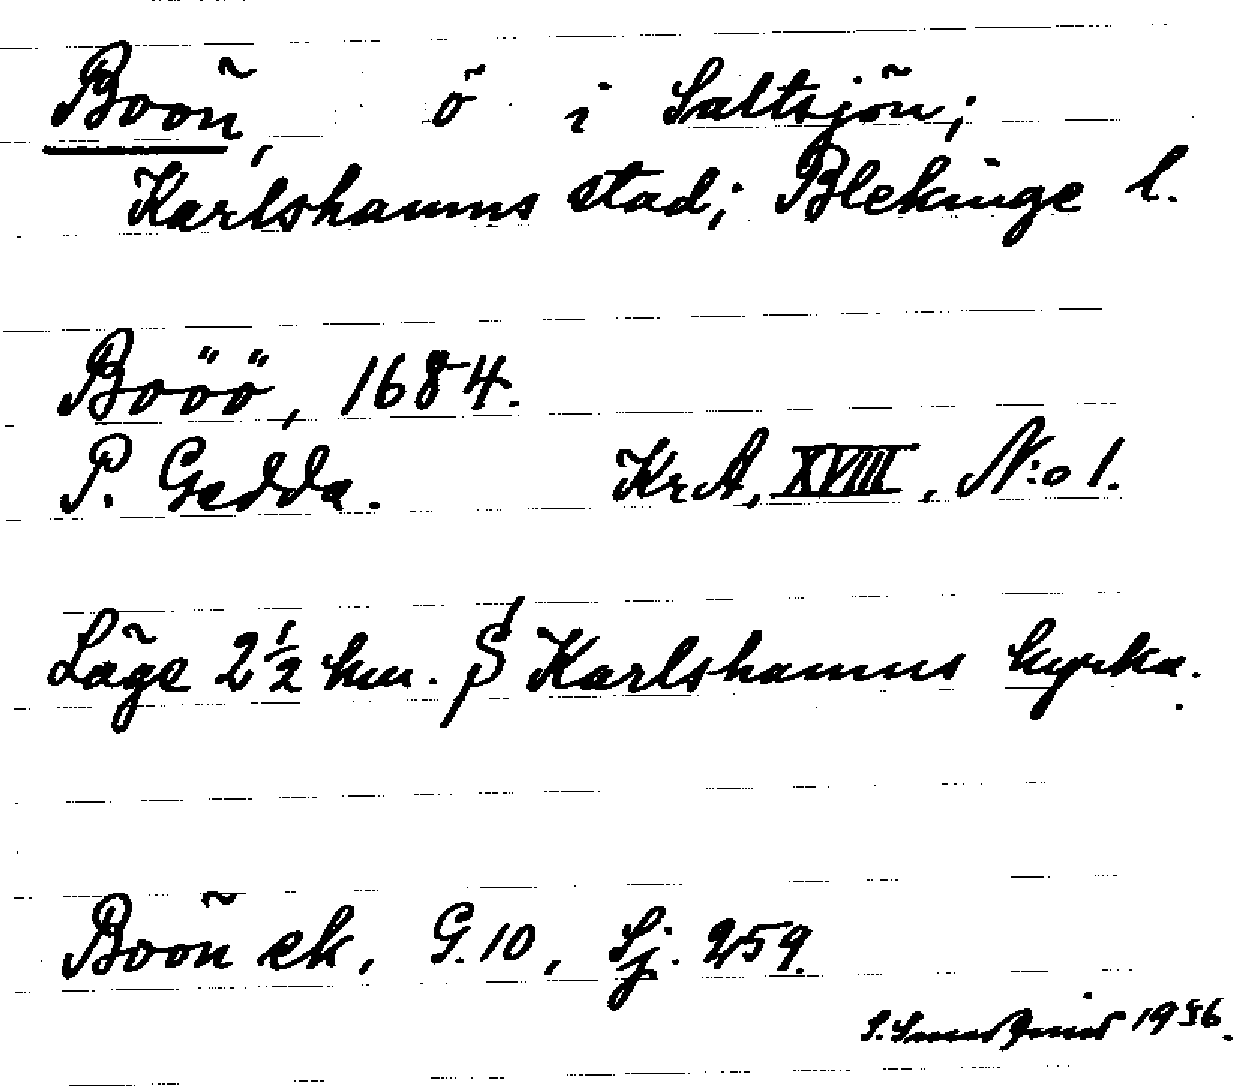 Boön, ö i Saltsjön;
Karlshamns stad; Blekinge l.
Boöö, 1684.
P. Gedda. KrA, XVIII, N:o 1.
Läge 2 1/2 km. S Karlshamns kyrka.
Boön ek, G.10, Sj. 259.
1936.